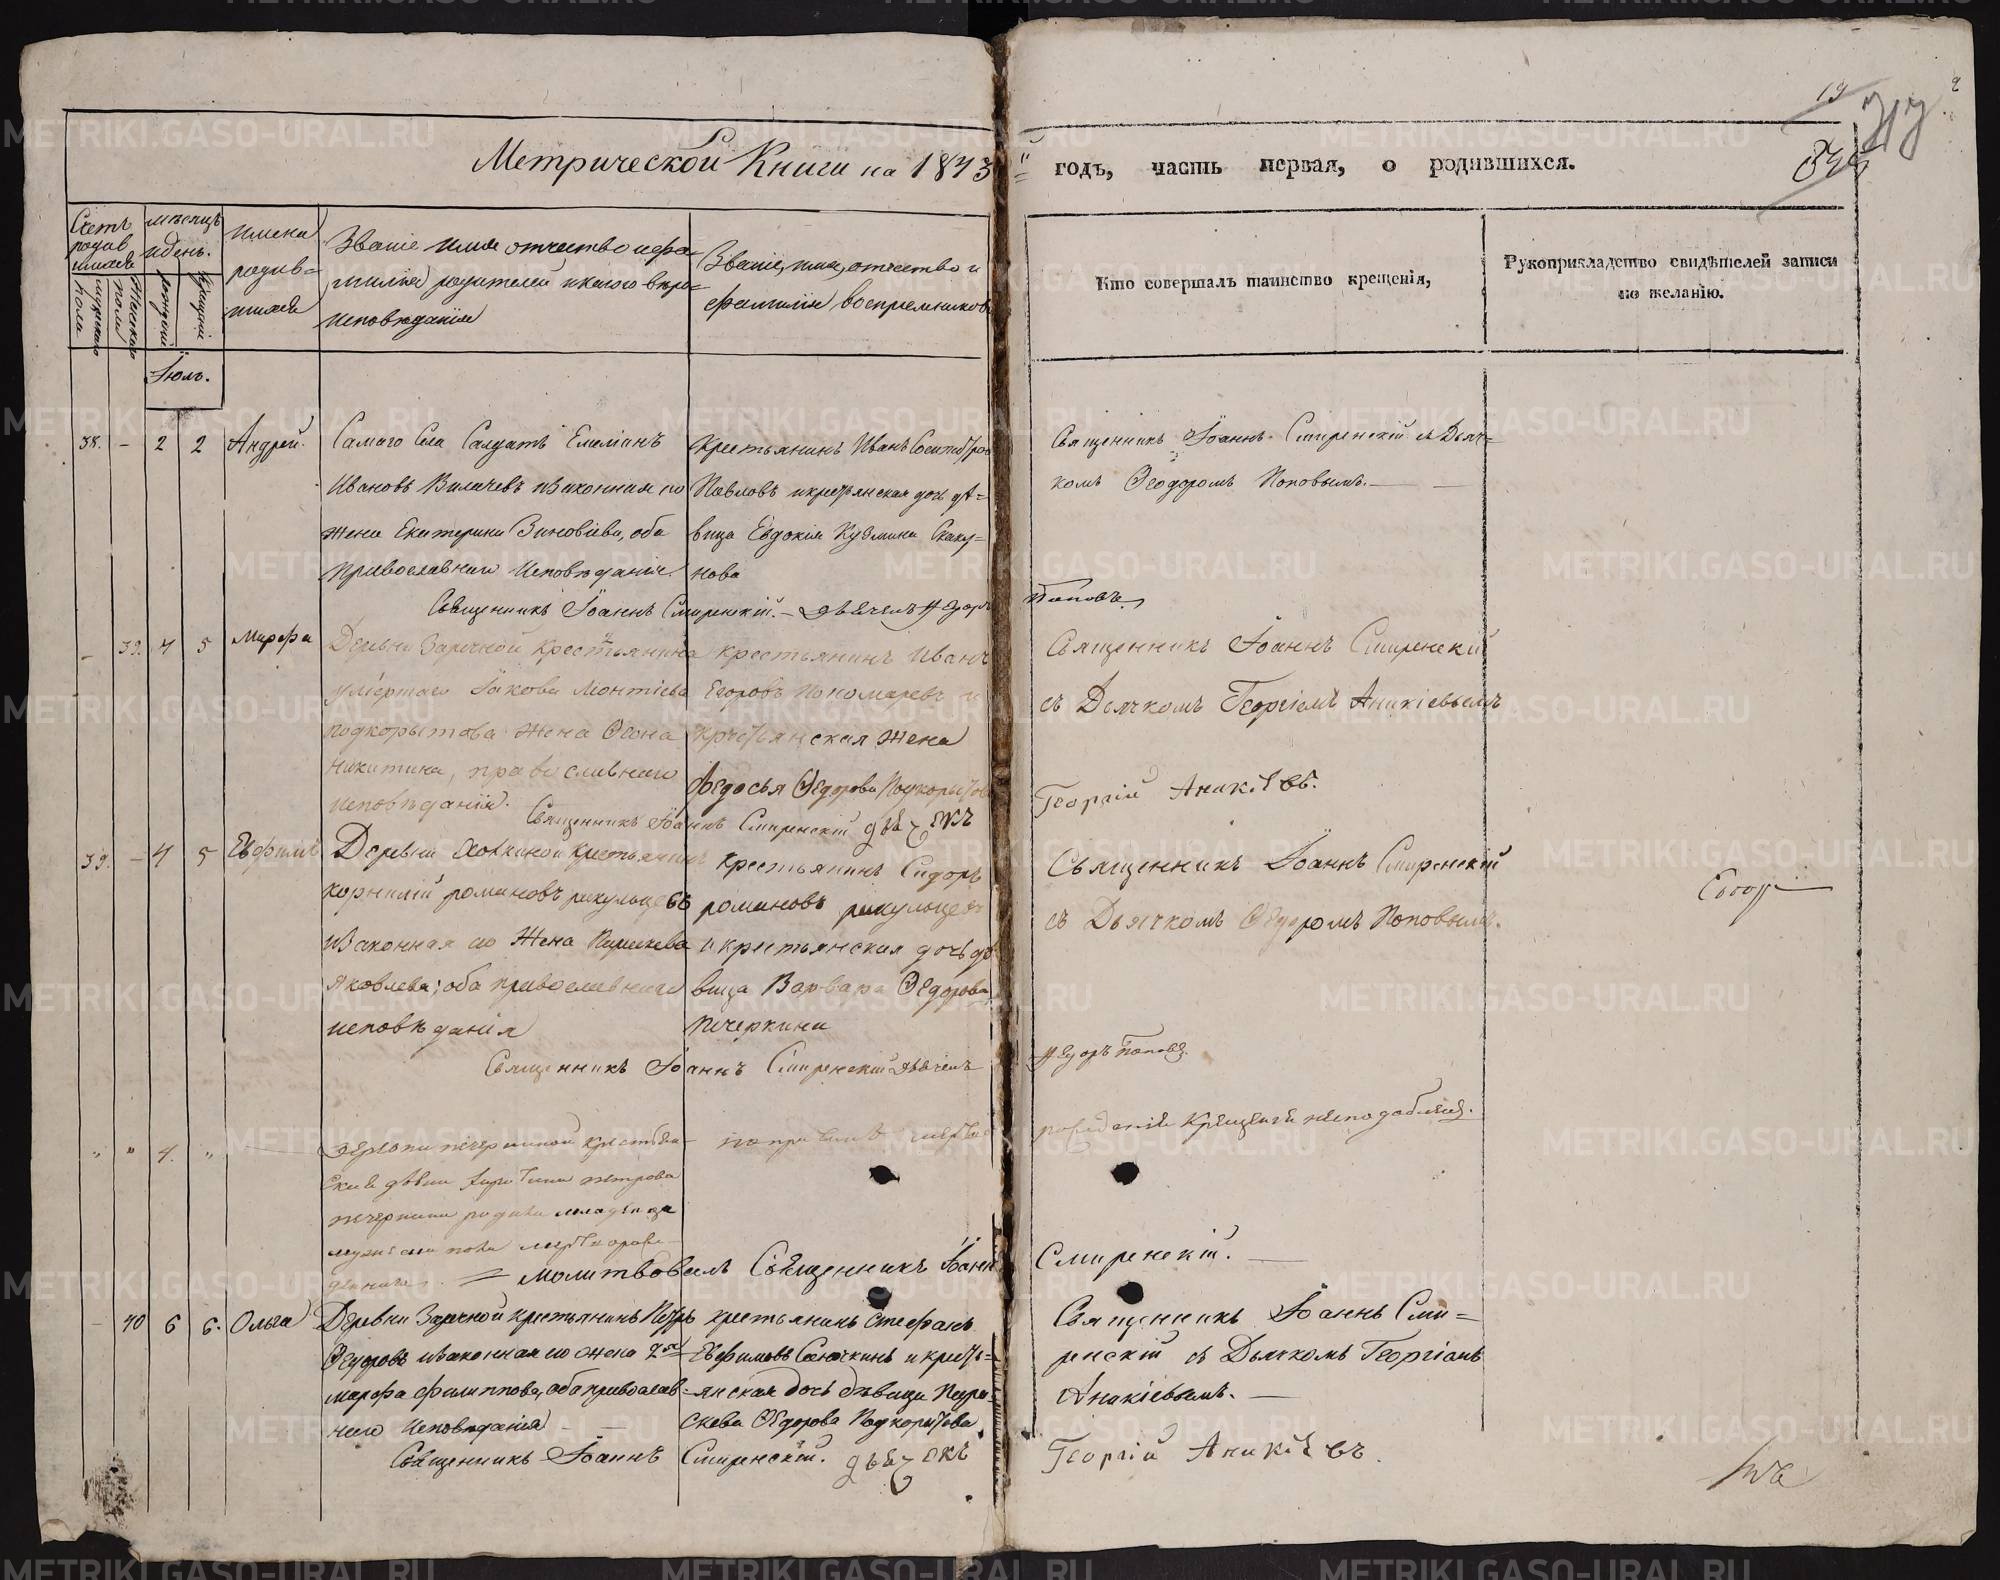 19
Метрической Книги на 1873й годъ, часть первая, о родившихся.
Счетъ родившихся
мужескаго пола
женскаго пола
мѣсяцъ и день.
рожденія
крещенія
имена родившихся
Званіе имя отчество и фамилія родителей и какого вѣроисповѣданія
Званіе, имя, отчество и фамилія воспреемниковъ
Кто совершалъ таинство крещенія,
Рукоприкладство свидѣтелей записи по желанію.
Іюль.
38. - 2 2 Андрей.
Самаго Села Салдатъ Емеліанъ
Ивановъ и законная его
жена Екатерина Зиновіева, оба
православнаго исповѣданія.
Крестьянинъ Иванъ
Павловъ и крестьянская дочь дѣ=
вица Евдокія Кузмина Скаку=
нова
Священникъ Іоаннъ Смиренскій съ Дьяч=
комъ Ѳеодоромъ Поповымъ.
Священникъ Іоаннъ Смиренскій. - дьячекъ Ѳедоръ Поповъ
- 39. 4 5 Марфа
Деревни Заречной крестьянина
умершаго Іакова Леонтіева
Подкорытова жена
Никитина, православнаго
исповѣданія.
крестьянинъ Иванъ
Егоровъ Пономаревъ и
крестьянская жена
Федосья Ѳедорова Подкорытов
Священникъ Іоаннъ Смиренскій
съ Дьячкомъ Георгіемъ Аникіевымъ
Священникъ Іоаннъ Смиренскій дьячокъ
Георгій Аникіевъ.
39. - 4 5 Евфимій
Деревни крестьянинъ
Корнилій Романовъ Ракульцевъ
и законная его жена Параскева
Яковлева; оба православнаго
исповѣданія
крестьянинъ Сидоръ
Романовъ Ракульцевъ
и крестьянская дочь дѣ
вица Варвара Ѳедорова
Печеркина
Священникъ Іоаннъ Смиренскій
съ Дьячкомъ Ѳедоромъ Поповымъ.
Священникъ Іоаннъ Смиренскій дьячекъ
Ѳедоръ Поповъ.
" " 4. "
Деревни Печеркиной крестьян
ская дѣвка Петрова
Печеркина родила младенца
мужеска пола
по причинѣ
молитвовалъ Священникъ Іоаннъ Смиренскій.
- 40 6 6. Ольга
Деревни Заречной крестьянинъ Петръ
Ѳедоровъ и законная его жена
Марфа Филиппова, оба православ=
наго исповѣданія
крестьянинъ Стефанъ
Евфимовъ и кресть=
янская дочь дѣвица Пара=
скева Ѳедорова Подкорытова
Священникъ Іоаннъ Сми=
ренскій съ Дьячкомъ Георгіемъ
Аникіевымъ.
Священникъ Іоаннъ Смиренскій. дьячокъ
Георгій Аникіевъ.
METRIKI.GASO-URAL.RU